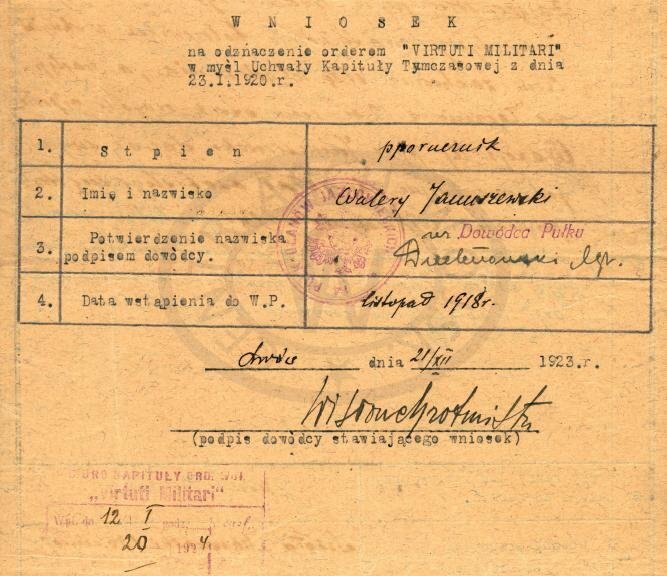 W N I O S E K
na odznaczenie orderem "VIRTUTI MILITARI"
w myśl Uchwały Kapituły Tymczasowej z dnia
23.I.1920.r.
1. S t p i e n pporucznik
2. Imię i nazwisko Walery Januszewski
wz Dowódca Pułku
3. Potwierdzenie nazwiska
podpisem dowódcy.
4. Data wstąpienia do W.P. listopad 1918r.
Lwów dnia 21/XII 1923.r.
(podpis dowódcy stawiającego wniosek)
BIURO KAPITUŁY ORD. WOJ.
„Virtuti Militari"
12 I
20 1924